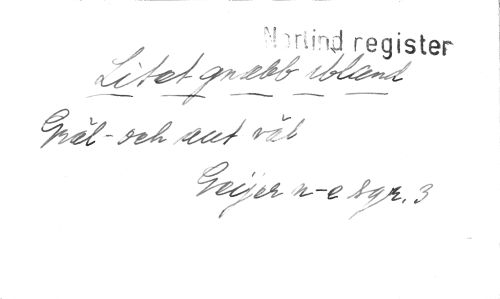 Norlind register
Litet gnabb ibland
Gräl- och allt väl
Geijer n-e sgr. 3